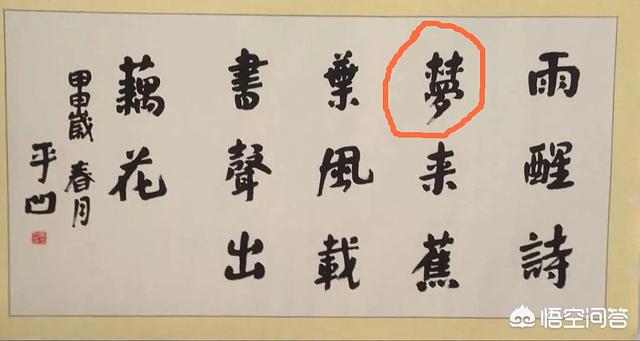 雨醒詩
夢来蕉
葉風載
書聲出
藕花
甲申歲春月
平凹
悟空问答